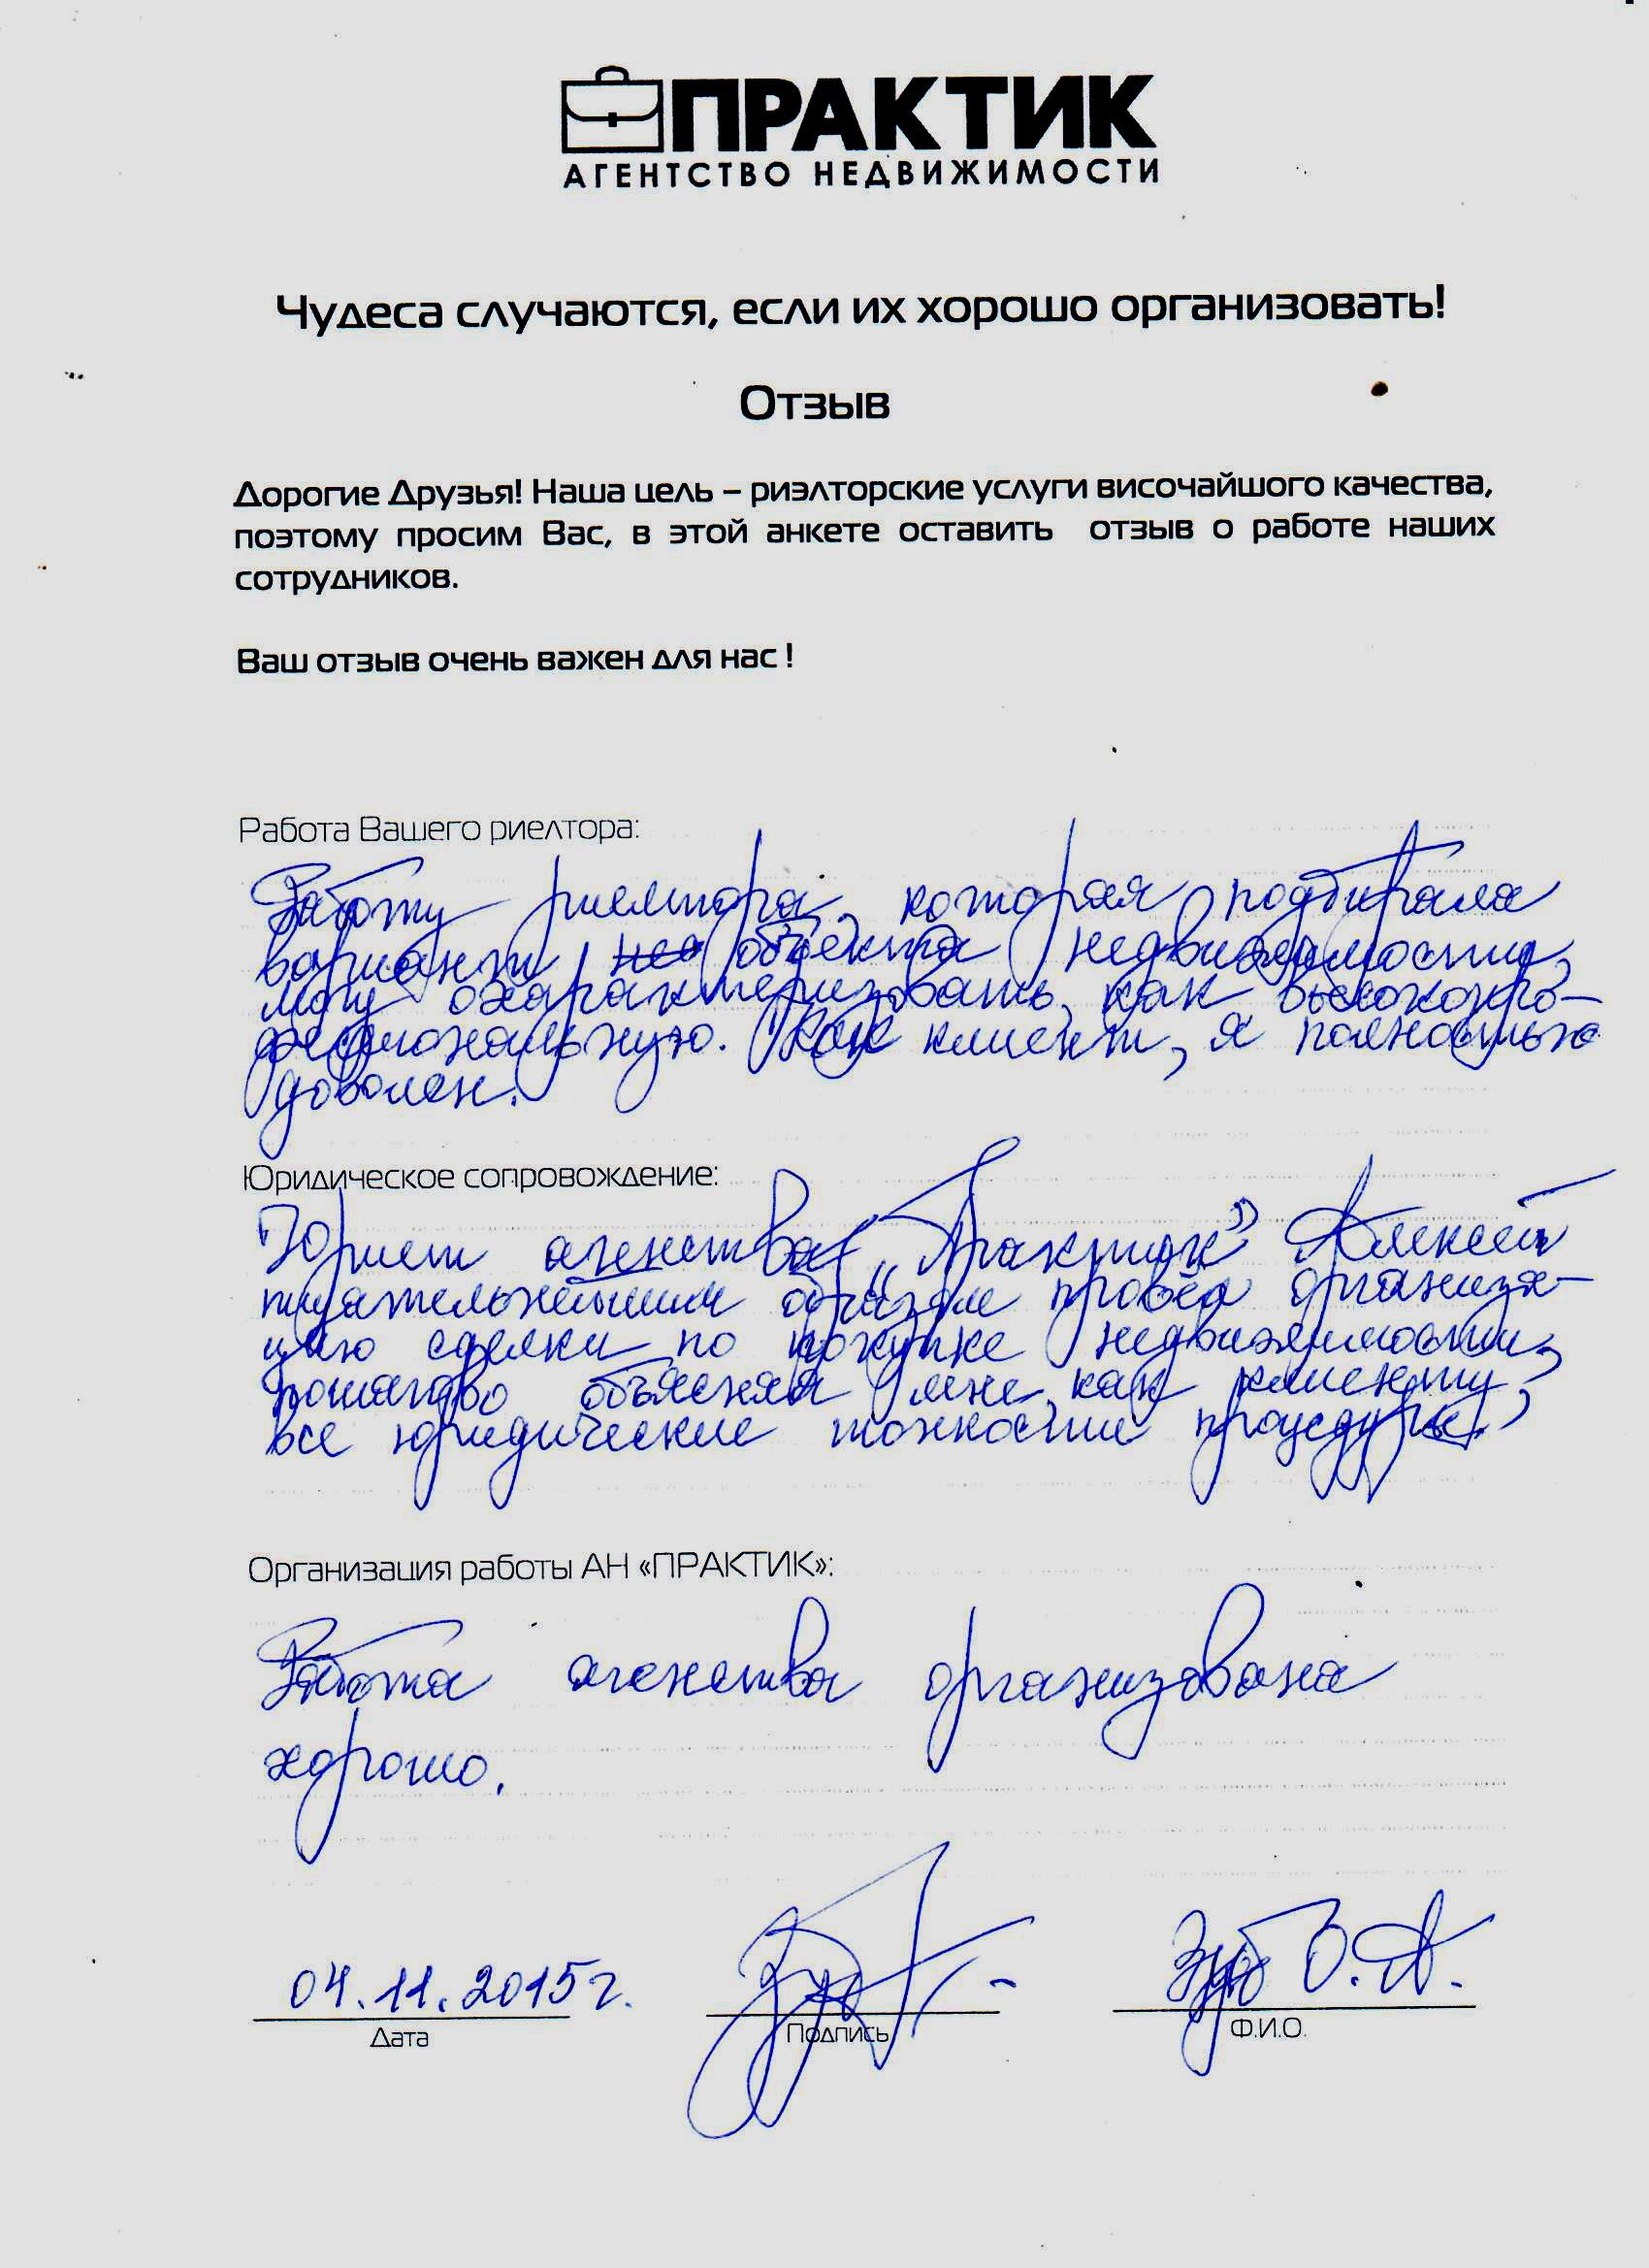 ПРАКТИК
АГЕНТСТВО НЕДВИЖИМОСТИ
Чудеса случаются, если их хорошо организовать!
Отзыв
Дорогие Друзья! Наша цель – риэлторские услуги височайшого качества,
поэтому просим Вас, в этой анкете оставить отзыв о работе наших
сотрудников.
Ваш отзыв очень важен для нас !
Работа Вашего риелтора:
Работу риелтора, которая подбирала
варианты нев объекта недвижимости,
могу охарактеризовать, как высокопро-
фессиональную. Как клиент, я полностью
доволен.
Юридическое сопровождение:
Юрист агенства „Практик” Алексей
тщательнейшим образом провёл организа-
цию сделки по покупке недвижимости,
пошагово объяснял мне, как клиенту,
все юридические тонкости процедуры.
Организация работы АН «ПРАКТИК»:
Работа агенства организована
хорошо.
04.11.2015г. Зуб В.А.
Дата Подпись Ф.И.О.